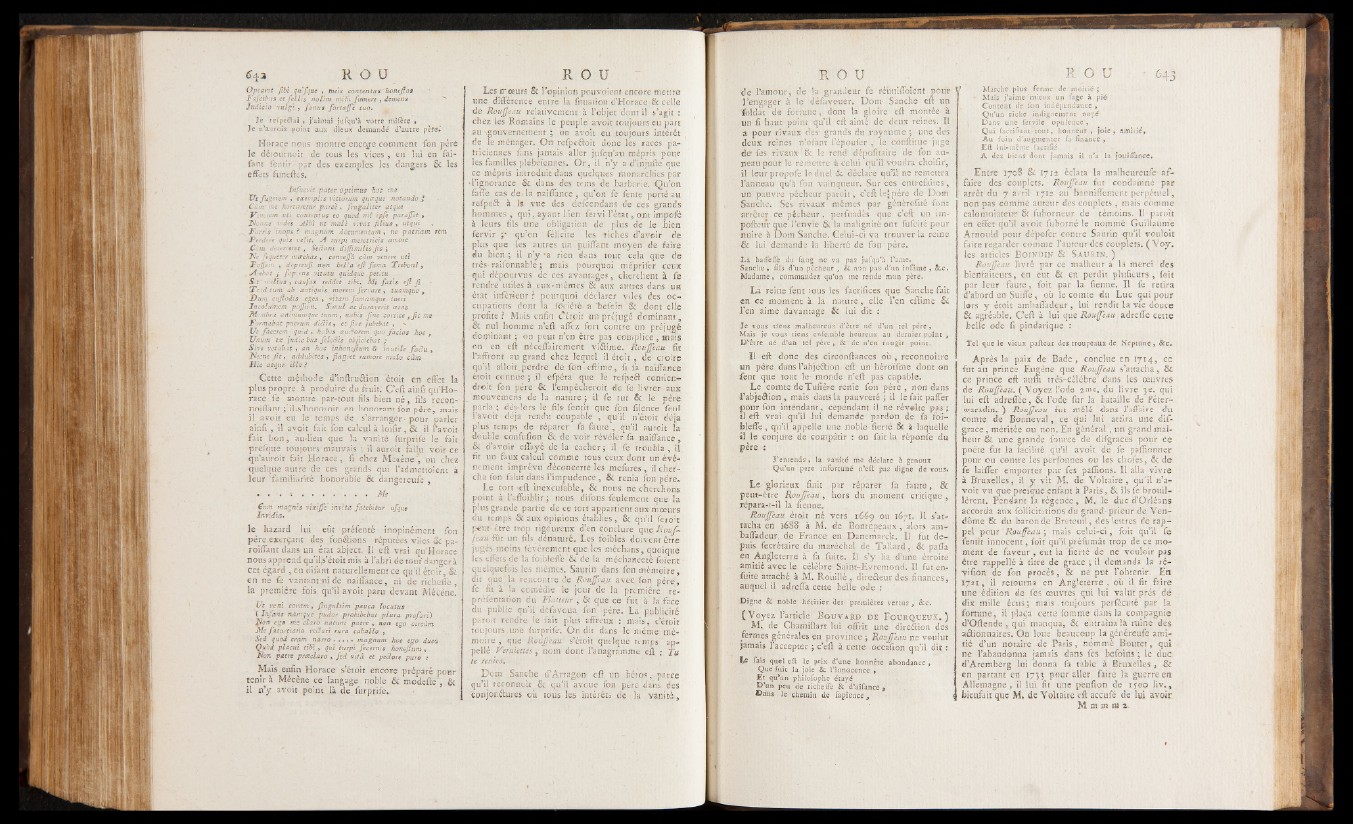 642 R O U
Optaret sibi quisque , meis contentus honestos
Fascibus et sellis nollem mihi sumere , demens
Judicio vulgi , sanus fortasse tuo.
Je respectai , j'aimai jusqu'à votre misère ,
Je n'aurois point aux dieux demandé d'autre père.
Horace nous montre encore comment son père
le détournoit de tous les vices , en lui en fai-
sant sentir par des exemples les dangers & les
effets funestes.
Insuevit pater optimus hoc me
Ut fugerem , exemplis vitiorum quæque notando ;
Cum me hortaretur parcè , frugaliter atque
Viverem uti contentus eo quod mi ipse parasset ,
Nonne vides Albi ut malè vivat filius , utque
Barrus inops ? magnum documentum , ne patriam rem
Perdere quis velit. A turpi meretricis amore
Cum deterreret , Sectani dissimilis sis ;
Ne sequerer mœchas , concessâ cùm venere uti
Possem , deprensi non bella est fama Trebonî ,
Aiebat ; sapiens vitatu quidque petitu
Sit melius , causas reddet tibi. Mî satis est si
Traditum ab antiquis morem servare , tuamque ,
Dum custodis eges , vitam famamque tueri
Incolumem possum. Simul ac duraverit ætas
Membra animumque tuum , nabis sine cortice , sic me
Formabat puerum dictis , et sive jubebat ,
Ut facerem quid , habes auctorem quo facias hoc ,
Unum ex judicibus selectis objiciebat ;
Sive vetabat , an hoc inhonestum & inutile factu ,
Necne sit , addubites , flagret rumore malo cùm
Hic atque ille ?
Cette méthode d'instruction étoit en effet la
plus propre à produire du fruit. C'est ainsi qu'Ho-
race se montre par-tout fils bien né , fils recon-
noissant ; il s'honoroit en honorant son père , mais
il avoit eu le temps de s'arranger pour parler
ainsi , il avoit fait son calcul à loisir , & il l'avoit
fait bon , au-lieu que la vanité surprise le fait
presque toujours mauvais : il auroit fallu voir ce
qu'auroit fait Horace , si chez Mécène , ou chez
quelque autre de ces grands qui l'admettoient à
leur familiarité honorable & dangereuse ,
. . . . . . . . . . . Me
Cum magnis vixisse invita fatebitur usque
Invidia.
le hazard lui eût présenté inopinément son
père exerçant des fonctions réputées viles & pa-
roissant dans un état abject. Il est vrai qu'Horace
nous apprend qu'il s'étoit mis à l'abri de tout danger à
cet égard , en disant naturellement ce qu'il étoit , &
en ne se vantant ni de naissance , ni de richesse ,
la première fois qu'il avoit paru devant Mécène.
Ut veni coram , singultim pauca locutus
( Infans namque pudor prohibebat plura profari )
Non ego me claro natum patre , non ego circùm
Me satureiano vectari rura caballo ,
Sed quod eram narro . . . . magnum hoc ego duco
Quod placui tibi , qui turpi secernis honestum ,
Non patre præclaro , sed vitâ et pectore puro :
Mais enfin Horace s'étoit encore préparé pour
tenir à Mécène ce langage noble & modeste , &
il n'y avoit point là de surprise.
R O U
Les mœurs & l'opinion pouvoient encore mettre
une différence entre la situation d'Horace & celle
de Rousseau relativement à l'objet dont il s'agit :
chez les Romains le peuple avoit toujours eu part
au gouvernement ; on avoit eu toujours intérêt
de le ménager. On respectoit donc les races pa-
triciennes sans jamais aller jusqu'au mépris pour
les familles plébéiennes. Or , il n'y a d'injuste que
ce mépris introduit dans quelques monarchies par
l'ignorance & dans des tems de barbarie. Qu'on
fasse cas de la naissance , qu'on se sente porté au
respect à la vue des descendans de ces grands
hommes , qui , ayant bien servi l'état , ont imposé
à leurs fils une obligation de plus de le bien
servir ; qu'on félicite les riches d'avoir de
plus que les autres un puissant moyen de faire
du bien ; il n'y a rien dans tout cela que de
très-raisonnable ; mais pourquoi mépriser ceux
qui dépourvus de ces avantages , cherchent à se
rendre utiles à eux-mêmes & aux autres dans un
état inférieur ? pourquoi déclarer viles des oc-
cupations dont la société a besoin & dont elle
profite ? Mais enfin c'étoit un préjugé dominant ,
& nul homme n'est assez fort contre un préjugé
dominant ; on peut n'en être pas complice , mais
on en est nécessairement victime. Rousseau fit
l'affront au grand chez lequel il étoit , de croire
qu'il alloit perdre de son estime , si sa naissance
étoit connue ; il espéra que le respect contien-
droit son père & l'empêcheroit de se livrer aux
mouvemens de la nature ; il se tut & le père
parla ; dès-lors le fils sentit que son silence seul
l'avoit déjà rendu coupable , qu'il n'étoit déjà
plus temps de réparer sa faute , qu'il auroit la
double confusion & de voir révéler sa naissance ,
& d'avoir essayé de la cacher ; il se troubla , il
fit un faux calcul comme tous ceux dont un évé-
nement imprévu déconcerte les mesures , il cher-
cha son salut dans l'impudence , & renia son père.
Le tort est inexcusable , & nous ne cherchons
point à l'affoiblir ; nous disons seulement que la
plus grande partie de ce tort appartient aux mœurs
du temps & aux opinions établies , & qu'il seroit
peut-être trop rigoureux d'en conclure que Rous-
seau fût un fils dénaturé. Les foibles doivent être
jugés moins sévèrement que les méchans , quoique
les effets de la foiblesse & de la méchanceté soient
quelquefois les mêmes. Saurin dans son mémoire ,
dit que la rencontre de Rousseau avec son père ,
se fit à la comédie le jour de la première re-
présentation du Flatteur , & que ce fut à la face
du public qu'il désavoua son père. La publicité
paroît rendre le fait plus affreux : mais , c'étoit
toujours une surprise. On dit dans le même mé-
moire , que Rousseau s'étoit quelque temps ap-
pellé Verniettes , nom dont l'anagramme est : Tu
te renies.
Dom Sanche d'Arragon est un héros , parce
qu'il reconnoît & qu'il avoue son père dans des
conjonctures où tous les intérêts de la vanité ,
R O U
de l'amour , de la grandeur se réunissoient pour
l'engager à le désavouer. Dom Sanche est un
soldat de fortune , dont la gloire est montée à
un si haut point qu'il est aimé de deux reines. Il
a pour rivaux des grands du royaume ; une des
deux reines n'osant l'épouser , le constitue juge
de ses rivaux & le rend dépositaire de son an-
neau pour le remettre à celui qu'il voudra choisir,
il leur propose le duel & déclare qu'il ne remettra
l'anneau qu'à son vainqueur. Sur ces entrefaites ,
un pauvre pêcheur paroît , c'est le père de Dom
Sanche. Ses rivaux mêmes par générosité font
arrêter ce pêcheur , persuadés que c'est un im-
posteur que l'envie & la malignité ont suscité pour
nuire à Dom Sanche. Celui-ci va trouver la reine
& lui demande la liberté de son père.
La bassesse du sang ne va pas jusqu'à l'ame.
Sanche , fils d'un pêcheur , & non pas d'un infâme , &c.
Madame , commandez qu'on me rende mon père.
La reine sent tous les sacrifices que Sanche fait
en ce moment à la nature , elle l'en estime &
l'en aime davantage & lui dit :
Je vous tiens malheureux d'être né d'un tel père ,
Mais je vous tiens ensemble heureux au dernier point ,
D'être né d'un tel père , & de n'en rougir point.
Il est donc des circonstances où , reconnoître
un père dans l'abjection est un héroïsme dont on
sent que tout le monde n'est pas capable.
Le comte de Tufière renie son père , non dans
l'abjection , mais dans la pauvreté ; il le fait passer
pour son intendant , cependant il ne révolte pas ;
il est vrai qu'il lui demande pardon de sa foi-
blesse , qu'il appelle une noble fierté & à laquelle
il le conjure de compâtir : on sait la réponse du
père :
J'entends , la vanité me déclare à genoux
Qu'un père infortuné n'est pas digne de vous.
Le glorieux finit par réparer sa faute , &
peut-être Rousseau , hors du moment critique ,
répara-t-il la sienne.
Rousseau étoit né vers 1669 ou 1671. Il s'at-
tacha en 1688 à M. de Bonrépeaux , alors am-
bassadeur de France en Danemarck. Il fut de-
puis secrétaire du maréchal de Tallard , & passa
en Angleterre à sa suite. Il s'y lia d'une étroite
amitié avec le célèbre Saint-Evremond. Il fut en-
suite attaché à M. Rouillé , directeur des finances ,
auquel il adressa cette belle ode :
Digne & noble héritier des premières vertus , &c.
( Voyez l'article BOUVARD DE FOURQUEUX. )
M. de Chamillart lui offrit une direction des
fermes générales en province ; Rousseau ne voulut
jamais l'accepter ; c'est à cette occasion qu'il dit :
Je sais quel est le prix d'une honnête abondance ,
Que suit la joie & l'innocence ,
Et qu'un philosophe étayé
D'un peu de richesse & d'aisance ,
Dans le chemin de sapience ,
R O U 643
Marche plus ferme de moitié ;
Mais j'aime mieux un sage à pié
Content de son indépendance ,
Qu'un riche indignement noyé
Dans une servile opulence ,
Qui sacrifiant tout , honneur , joie , amitié,
Au soin d'augmenter sa finance ,
Est lui-même sacrifié
A des biens dont jamais il n'a la jouissance.
Entre 1708 & 1712 éclata la malheureuse af-
faire des couplets. Rousseau fut condamné par
arrêt du 7 avril 1712 au bannissement perpétuel ,
non pas comme auteur des couplets , mais comme
calomniateur & suborneur de témoins. Il paroît
en effet qu'il avoit suborné le nommé Guillaume
Arnould pour déposer contre Saurin qu'il vouloit
faire regarder comme l'auteur des couplets. ( Voy.
les articles BOINDIN & SAURIN. )
Rousseau livré par ce malheur à la merci des
bienfaiteurs , en eut & en perdit plusieurs , soit
par leur faute , soit par la sienne. Il se retira
d'abord en Suisse , où le comte du Luc qui pour
lors y étoit ambassadeur , lui rendit la vie douce
& agréable. C'est à lui que Rousseau adresse cette
belle ode si pindarique :
Tel que le vieux pasteur des troupeaux de Neptune , &c.
Après la paix de Bade , conclue en 1714, ce
fut au prince Eugène que Rousseau s'attacha , &
ce prince est aussi très-célébré dans les œuvres
de Rousseau. ( Voyez l'ode 2me. du livre 3e. qui
lui est adressée , & l'ode sur la bataille de Péter-
waradin. ) Rousseau fut mêlé dans l'affaire du
comte de Bonneval , ce qui lui attira une dis-
grace , méritée ou non. En général , un grand mal-
heur & une grande source de disgraces pour ce
poëte fut la facilité qu'il avoit de se passionner
pour ou contre les personnes ou les choses , & de
se laisser emporter par ses passions. Il alla vivre
à Bruxelles , il y vit M. de Voltaire , qu'il n'a-
voit vu que presque enfant à Paris , & ils se brouil-
lèrent. Pendant la régence , M. le duc d'Orléans
accorda aux sollicitations du grand-prieur de Ven-
dôme & du baron de Breteuil , des lettres de rap-
pel pour Rousseau ; mais celui-ci , soit qu'il se
sentît innocent , soit qu'il présumât trop de ce mo-
ment de faveur , eut la fierté de ne vouloir pas
être rappellé à titre de grace ; il demanda la ré-
vision de son procès , & ne put l'obtenir. En
1721 , il retourna en Angleterre , où il fit faire
une édition de ses œuvres qui lui valut près de
dix mille écus ; mais toujours persécuté par la
fortune , il plaça cette somme dans la compagnie
d'Ostende , qui manqua , & entraîna la ruine des
actionnaires. On loue beaucoup la généreuse ami-
tié d'un notaire de Paris , nommé Boutet , qui
ne l'abandonna jamais dans ses besoins ; le duc
d'Aremberg lui donna sa table à Bruxelles , &
en partant en 1733 pour aller faire la guerre en
Allemagne , il lui fit une pension de 1500 liv. ,
bienfait que M. de Voltaire est accusé de lui avoir
M m m m 2